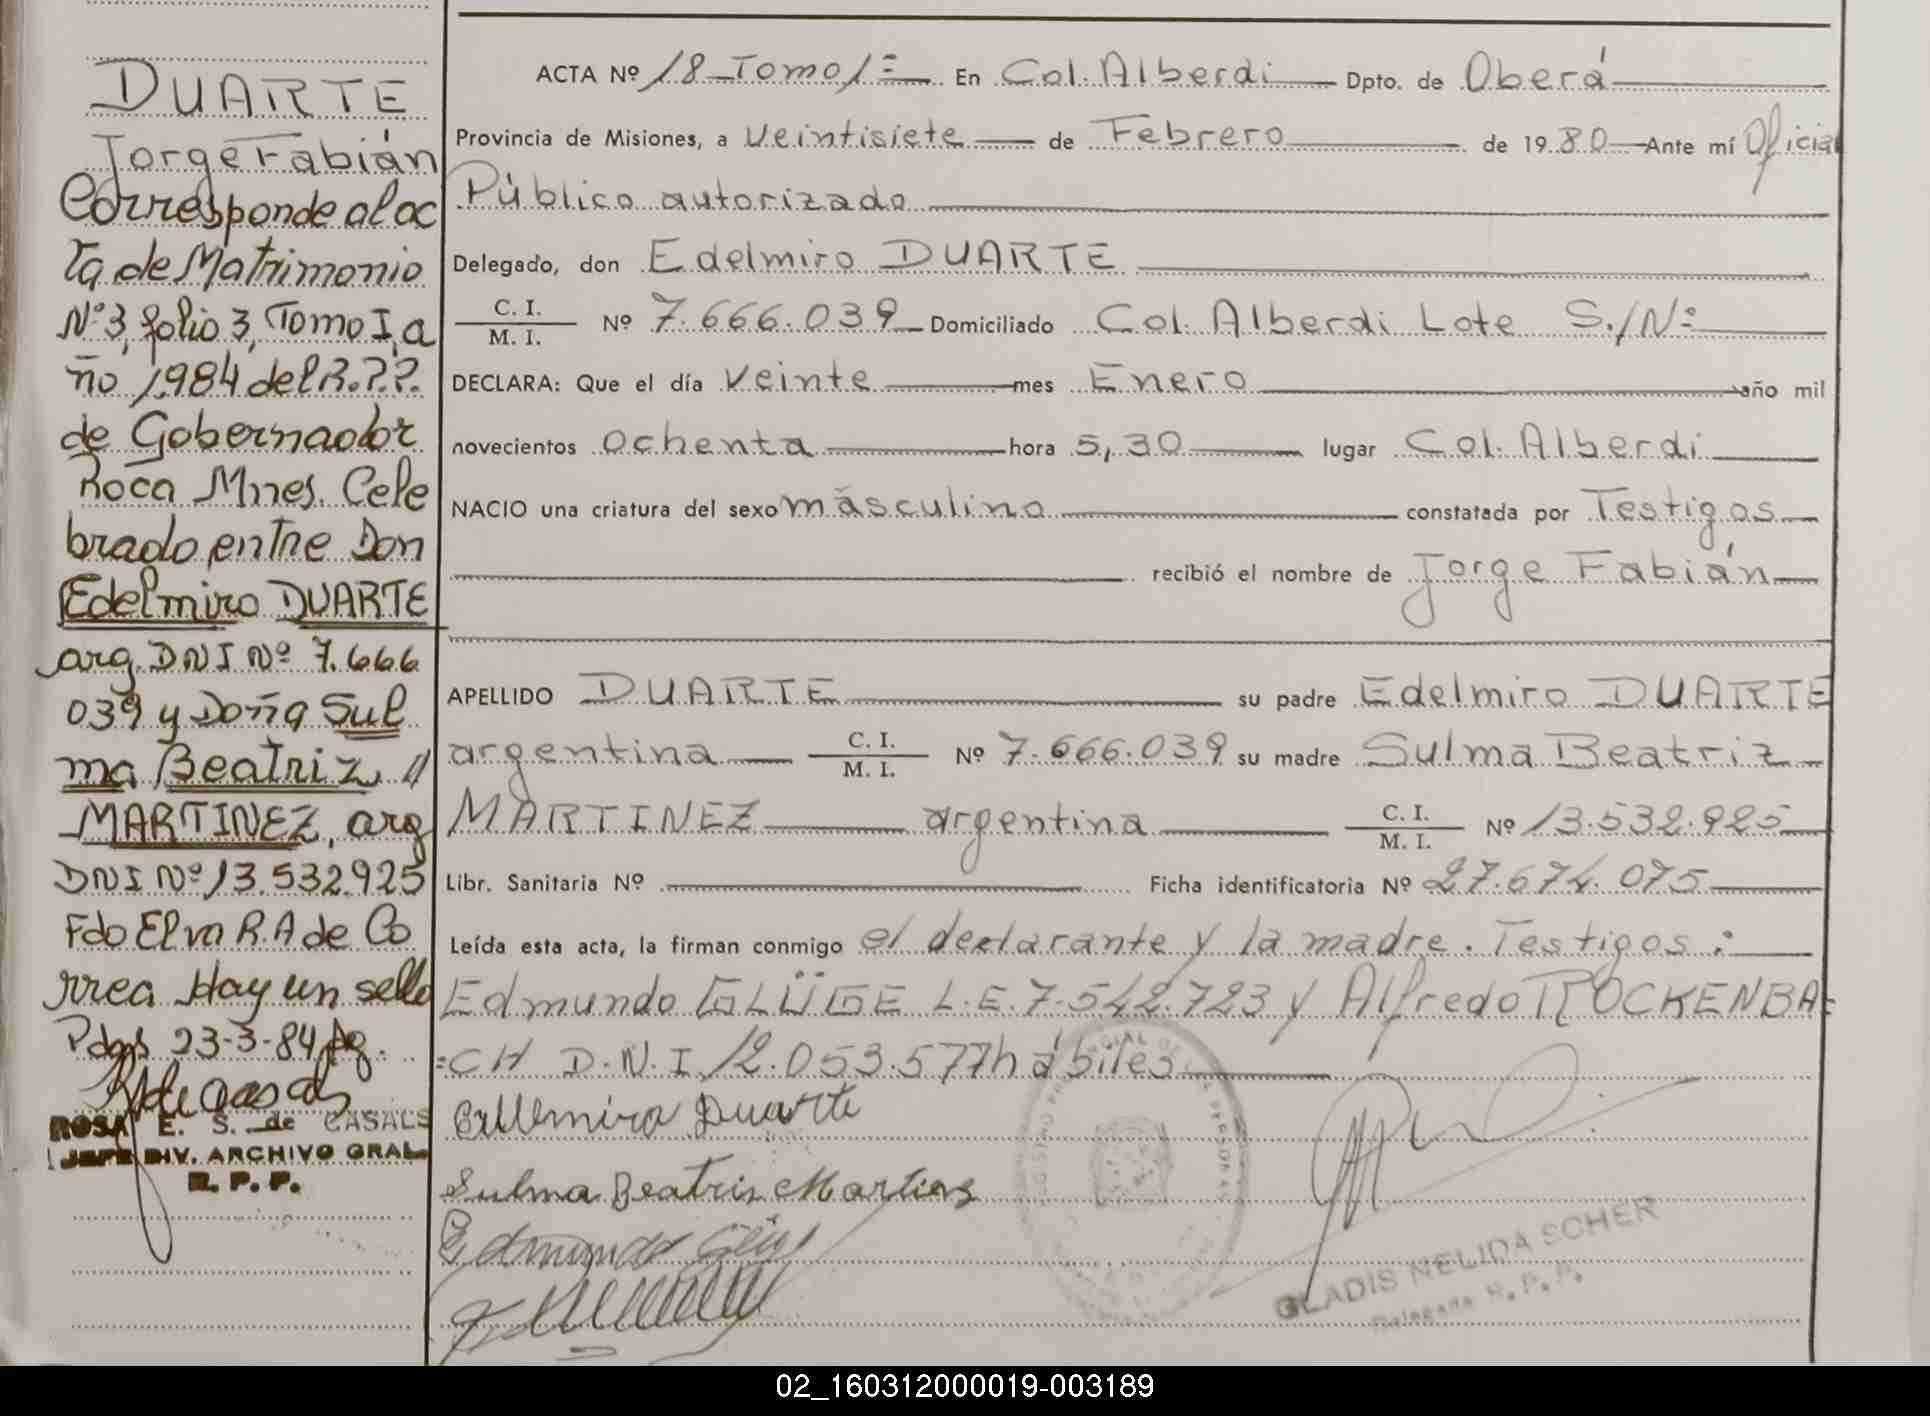 DUARTE
Jorge Fabián
Corresponde al ac
ta de Matrimonio
Nº 3, folio 3, Tomo I, a
ño 1984 del R.P.P.
de Gobernador
Roca Mnes. Cele
brado entre Don
Edelmiro DUARTE
arg. DNI Nº 7.666
039 y Doña Sul
ma Beatriz //
MARTINEZ, arg
DNI Nº 13.532.925
Fdo Elva R.A de Co
rrea Hay un sello
Pdas 23-3-84
ROSA E. S. de CASALS
JEFE DIV. ARCHIVO GRAL.
R. P. P.
ACTA Nº 18 Tomo 1º En Col. Alberdi Dpto. de Oberá
Provincia de Misiones, a veintisiete de Febrero de 1980 Ante mí Oficial
Público autorizado
Delegado, don Edelmiro DUARTE
C. I.
M. I. Nº 7.666.039 Domiciliado Col. Alberdi Lote S./Nº
DECLARA: Que el día veinte mes Enero año mil
novecientos ochenta hora 5,30 lugar Col. Alberdi
NACIO una criatura del sexo másculino constatada por Testigos
recibió el nombre de Jorge Fabián
APELLIDO DUARTE su padre Edelmiro DUARTE
argentina C. I. M. I. Nº 7.666.039 su madre Sulma Beatriz
MARTINEZ argentina C. I. M. I. Nº 13.532.925
Libr. Sanitaria Nº Ficha identificatoria Nº 27.674.075
Leída esta acta, la firman conmigo el declarante y la madre. Testigos:
Edmundo GLÜGE L.E. 7.542.723 y Alfredo ROCKENBA=
=CH D.N.I 12.053.577 hábiles
Duarte
Sulma Beatris Martines
Edmundo
GLADIS NELIDA SCHER
Delegada R. P. P.
02_160312000019-003189